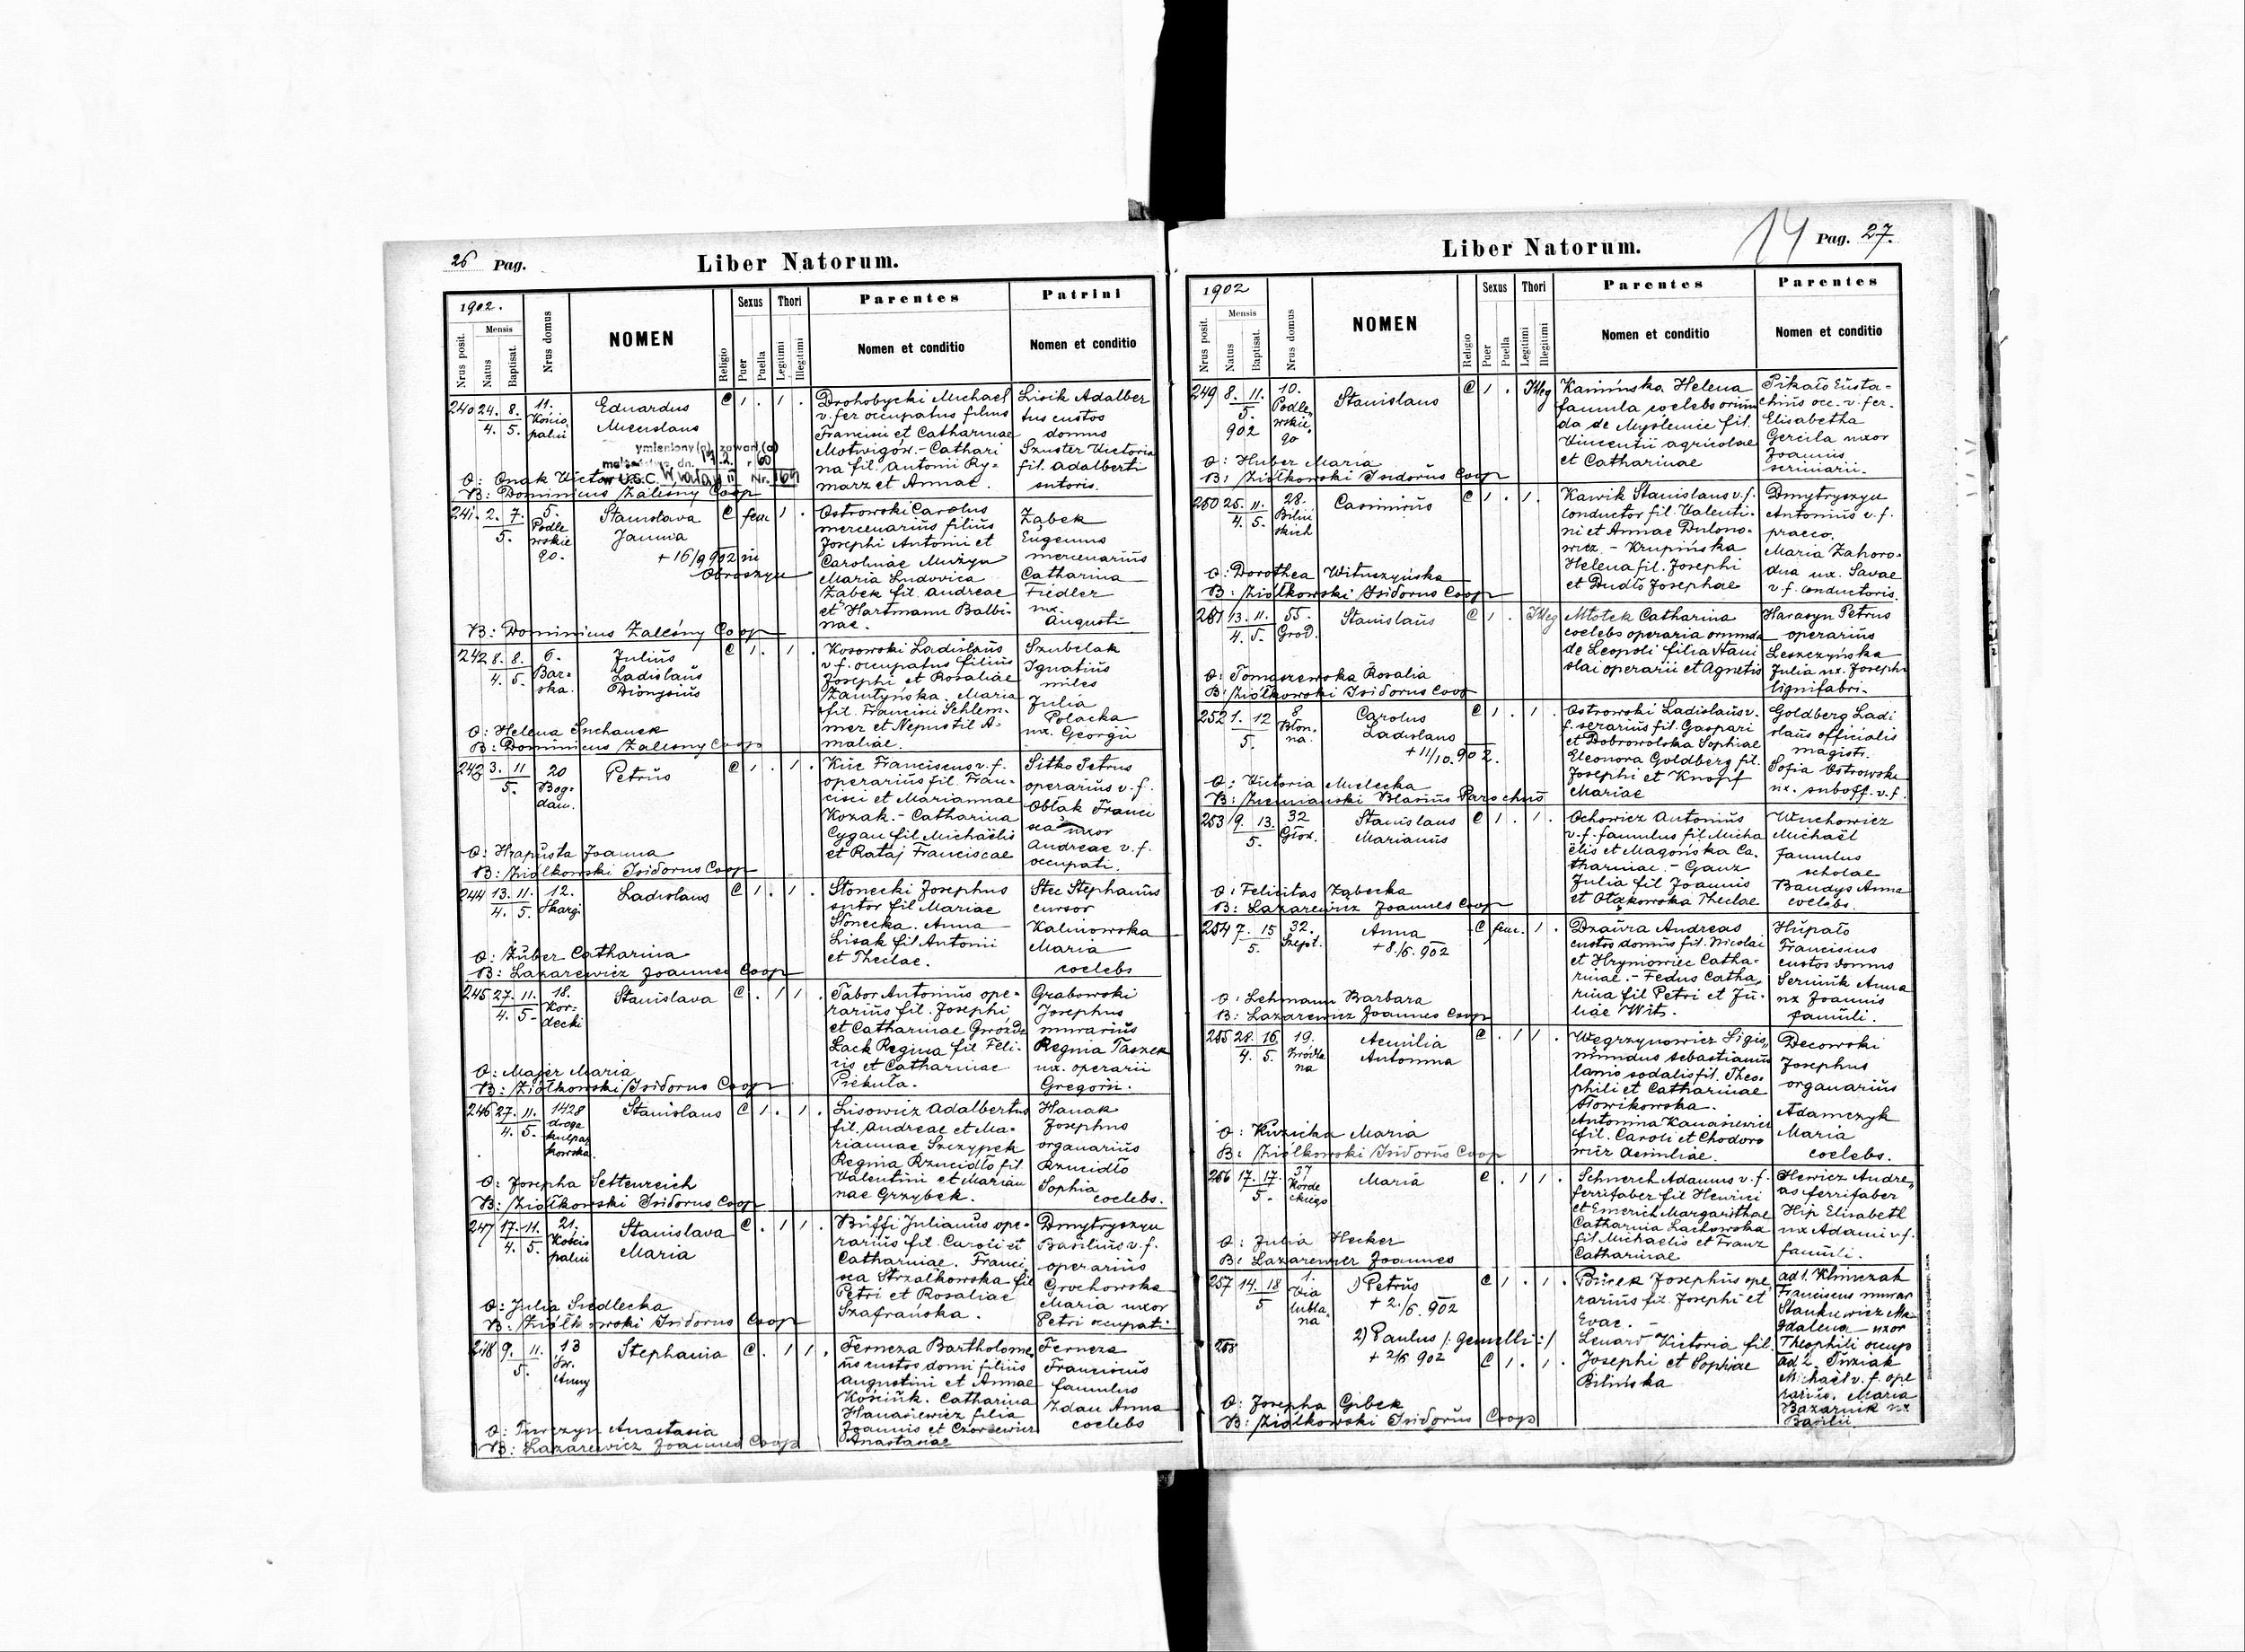 26 Pag.
Liber Natorum.
1902.
Nrus posit.
Mensis
Natus
Baptisat.
Nrus domus
NOMEN
Religio
Sexus
Puer
Puella
Thori
Legitimi
Illegitimi
Parentes
Nomen et conditio
Patrini
Nomen et conditio
240 24. 8.
4. 5.
11.
Eduardus
C 1 . 1 .
Drohobycki Michael
v. fer occupatus filius
Francisci et Catharinae
Motwigów. - Cathari
na fil. Antonii Ry-
marz et Annae.
Lisik Adalber
tus custos
domus
Szuster Victoria
fil. Adalberti
sutoris.
O: Onak Victor
B: Dominicus Zalesny Coop
241. 2. 7.
5.
5.
Podle
wskie
go.
Stanislava
Janina
+ 16/9 902 in
Obroszyn
C fem 1 .
Ostrowski Carolus
mercenarius filius
Josephi Antonii et
Carolinae Muzyn
Maria Ludovica
Ząbek fil. Andreae
et Hartmann Balbi-
nae.
Ząbek
Eugenius
mercenarius
Catharina
Fiedler
ux.
Augusti
B: Dominicus Zalesny Coop
242 8. 8.
4. 5.
6.
Bar-
ska.
Julius
Ladislaus
Dionysius
C 1 . 1 .
Kosowski Ladislaus
v. f. occupatus filius
Josephi et Rosaliae
Zamtyńska. Maria
fil. Francisci Schlem-
mer et Nepustil A-
maliae.
Szubelak
Ignatius
miles
Julia
Polacka
ux. Georgii
O: Helena Suchanek
B: Dominicus Zalesny Coop
243 3. 11
5.
20
Bog-
dan.
Petrus
C 1 . 1 .
Kuc Franciscus v. f.
operarius fil. Fran-
cisci et Mariannae
Kozak. - Catharina
Cygan fil Michaëlis
et Rataj Franciscae
Sitko Petrus
operarius v. f.
Obłak Franci
sca uxor
Andreae v. f.
occupati.
O: Hrapusta Joanna
B: Ziółkowski Isidorus Coop
244 13. 11.
4. 5.
12.
Skargi
Ladislaus
C 1 . 1 .
Słonecki Josephus
sutor fil Mariae
Słonecka. Anna
Lisak fil Antonii
et Theclae.
Stec Stephanus
cursor
Kalinowska
Maria
coelebs
O: Zuber Catharina
B: Lazarewicz Joannes Coop
245 27. 11.
4. 5.
18.
Kor-
decki
Stanislava
C . 1 1 .
Tabor Antonius ope-
rarius fil. Josephi
et Catharinae Gwóźdz
Lack Regina fil Feli-
cis et Catharinae
Piekuła.
Grabowski
Josephus
murarius
Regina Taszek
ux. operarii
Gregorii.
O: Majer Maria
B: Ziółkowski Isidorus Coop
246 27. 11.
4. 5.
1428
droga
kulpar
kowska
Stanislaus
C 1 . 1 .
Lisowicz Adalbertus
fil. Andreae et Ma-
riannae Szczypek
Regina Rzucidło fil.
Valentini et Marian
nae Grzybek.
Hanak
Josephus
organarius
Rzucidło
Sophia
coelebs.
O: Josepha Settenreich
B: Ziółkowski Isidorus Coop
247 17. 11.
4. 5.
21.
Stanislava
Maria
C . 1 1 .
Buffi Julianus ope-
rarius fil. Caroli et
Catharinae. Franci
sca Strzałkowska fil
Petri et Rosaliae
Szafrańska.
Dmytryszyn
Basilius v. f.
operarius
Grochowska
Maria uxor
Petri occupati
O: Julia Siedlecka
B: Ziółkowski Isidorus Coop
248 9. 11.
5.
13
Św.
Anny
Stephania
C . 1 1 .
Ferneza Bartholome
us custos domi filius
Augustini et Annae
Kościuk. Catharina
Hanasiewicz filia
Joannis et Czorcewicz
Anastasiae
Ferneza
Franciscus
famulus
Zdan Anna
coelebs
O: Turczyn Anastasia
B: Lazarewicz Joannes Coop
14
Pag. 27.
Liber Natorum.
1902
Nrus posit.
Mensis
Natus
Baptisat.
Nrus domus
NOMEN
Religio
Sexus
Puer
Puella
Thori
Legitimi
Illegitimi
Parentes
Nomen et conditio
Parentes
Nomen et conditio
249 8. 11.
5.
902
10.
Podle-
wskie-
go
Stanislaus
C 1 . Illeg
Kamińska Helena
famula coelebs oriun
da de Myslenice fil.
Vincentii agricolae
et Catharinae
Pikało Eusta-
chius occ. v. fer.
Elisabetha
Gercila uxor
Joannis
scriniarii.
O: Huber Maria
B: Ziółkowski Isidorus Coop
250 25. 11.
4. 5.
28.
Biliń
skich
Casimirus
C 1 . 1 .
Kawik Stanislaus v. f.
conductor fil. Valenti-
ni et Annae Dulono-
wicz. - Krupińska
Helena fil. Josephi
et Dudło Josephae
Dmytryszyn
Antonius v. f.
praeco.
Maria Zahoro-
dna ux. Savae
v. f. conductoris.
O: Dorothea Wituszyńska
B: Ziółkowski Isidorus Coop
251 13. 11.
4. 5.
55.
Grod.
Stanislaus
C 1 . Illeg
Młotek Catharina
coelebs operaria oriunda
de Leopoli filia Stani
slai operarii et Agnetis
Harasyn Petrus
operarius
Leszczyńska
Julia ux. Josephi
lignifabri.
O: Tomaszewska Rosalia
B: Ziółkowski Isidorus Coop
252 1. 12
5.
8
Błon.
na.
Carolus
Ladislaus
+ 11/10. 902.
C 1 . 1 .
Ostrowski Ladislaus v.
f. serarius fil. Gaspari
et Dobrowolska Sophiae
Eleonora Goldberg fil.
Josephi et Knopf
Mariae
Goldberg Ladi
slaus officialis
magistr.
Sofia Ostrowska
ux. suboff. v. f.
O: Victoria Mielecka
B: Ziemiański Blasius Parochus
253 9. 13.
5.
32
Głow.
Stanislaus
Marianus
C 1 . 1 .
Ochowicz Antonius
v. f. famulus fil Micha
ëlis et Magońska Ca-
tharinae - Ganz
Julia fil Joannis
et Otąkowska Theclae
Wuchowicz
Michaël
famulus
scholae
Bandys Anna
coelebs.
O: Felicitas Ząbecka
B: Lazarewicz Joannes Coop
254 7. 15
5.
32.
Szept.
Anna
+ 8/6. 902
C fem. 1 .
Dzaura Andreas
custos domus fil. Nicolai
et Hryniowiec Catha-
rinae. - Fedus Catha-
rina fil Petri et Ju-
liae Wit.
Hupało
Franciscus
custos domus
Serinik Anna
ux Joannis
famuli.
O: Lehmann Barbara
B: Lazarewicz Joannes Coop
255 28. 16
4. 5.
19.
Źródla
na
Aemilia
Antonina
C . 1 1 .
Węgrzynowicz Sigis-
mundus Sebastianus
lanio sodalis fil. Theo-
phili et Catharinae
Słowikowska.
Antonina Kanasiewicz
fil. Caroli et Chodoro
wicz Aemiliae.
Decowski
Josephus
organarius
Adamczyk
Maria
coelebs.
O: Kuzicka Maria
B: Ziółkowski Isidorus Coop
256 17. 17.
5.
37
Korde
ckiego
Maria
C . 1 1 .
Schnerch Adamus v. f.
ferrifaber fil Henrici
et Emerich Margarithae
Catharina Lachowska
fil Michaelis et Franz
Catharinae
Hewicz Andre-
as ferrifaber
Hip Elisabeth
ux Adami v. f.
famuli.
O: Julia Hecker
B: Lazarewicz Joannes
257 14. 18
5
1.
Via
lubla-
na
1) Petrus
+ 2./6. 902
C 1 . 1 .
Bucek Josephus ope
rarius fil. Josephi et
Evae. -
Lenard Victoria fil.
Josephi et Sophiae
Bilińska
ad 1. Klimczak
Franciscus murar
Stankiewicz Ma-
gdalena uxor
Theophili occup
258
2) Paulus /: gemelli :/
+ 2/6 902
C 1 . 1 .
ad 2. Tuziak
Michaël v. f. ope
rarius. Maria
Bazarnik ux
Basilii
O: Josepha Gibek
B: Ziółkowski Isidorus Coop